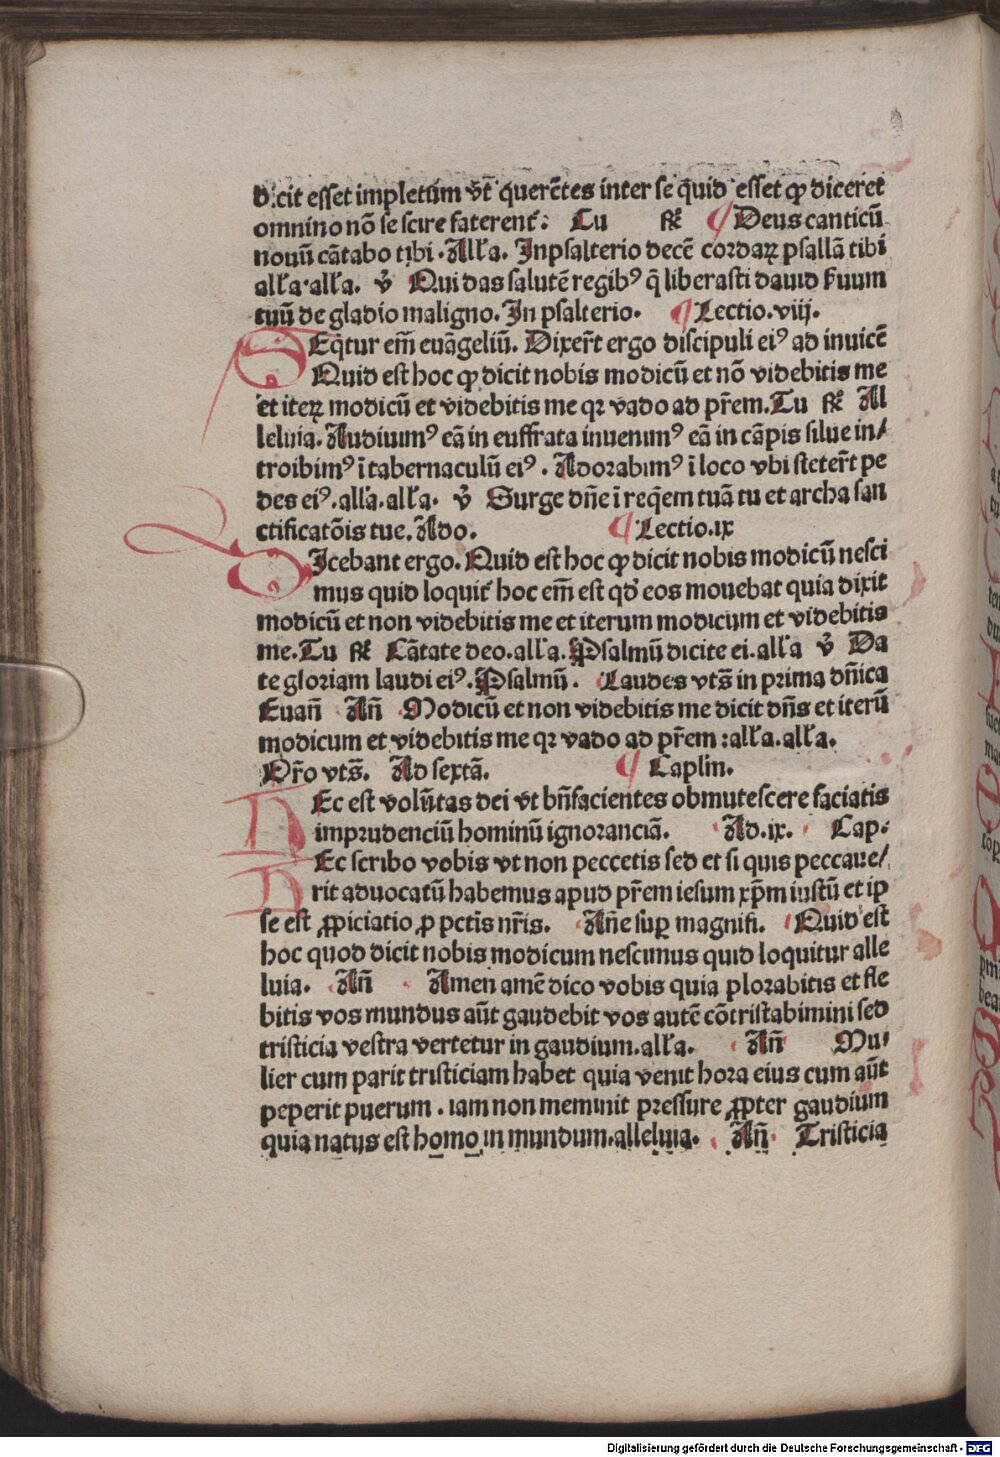 dicit esset impletum vt̄ querētes inter se quid esset ꝙ diceret
omnino nō se scire faterent᷑: Tu R̄ ¶ Deus canticū
nouū cātabo tibi. Alla. In psalterio decē cordaꝝ psallā tibi
alla. alla. v̄ Qui das salutē regibꝰ q̄ liberasti dauid ẜuum
tuū de gladio maligno. In psalterio. ¶ Lectio. viij.
SEq̄tur em̄ euāgeliū. Dixer̄t ergo discipuli eiꝰ ad inuicē
Quid est hoc ꝙ dicit nobis modicū et nō videbitis me
et iteꝝ modicū et videbitis me qꝛ vado ad pr̄em. Tu R̄ Al
leluia. Audiuimꝰ eā in euffrata inuenimꝰ eā in cāpis silue in/
troibimꝰ ī tabernaculū eiꝰ. Adorabimꝰ ī loco vbi steter̄t pe
des eiꝰ. alla. alla. v̄ Surge dn̄e ī req̄em tuā tu et archa san
ctificatōis tue. Ado. ¶ Lectio. ix
DIcebant ergo. Quid est hoc ꝙ dicit nobis modicū nesci
mus quid loquit᷑ hoc em̄ est qd̄ eos mouebat quia dixit
modicū et non videbitis me et iterum modicum et videbitis
me. Tu R̄ Cātate deo. alla. Psalmū dicite ei. alla v̄ Da
te gloriam laudi eiꝰ. Psalmū. Laudes vts̄ in prima dn̄ica
Euan̄ An̄ Modicū et non videbitis me dicit dn̄s et iterū
modicum et videbitis me qꝛ vado ad pr̄em: alla. alla.
Or̄o vts̄. Ad sextā. ¶ Caplm̄.
HEc est volūtas dei vt bn̄facientes obmutescere faciatis
imprudenciū hominū ignoranciā. Ad. ix. Cap.
HEc scribo vobis vt non peccetis sed et si quis peccaue/
rit aduocatū habemus apud pr̄em iesum xp̄m iustū et ip
se est ꝓpiciatio ꝓ pctīs nr̄is. An̄e suꝑ magnifi. Quid est
hoc quod dicit nobis modicum nescimus quid loquitur alle
luia. An̄ Amen amē dico vobis quia plorabitis et fle
bitis vos mundus aūt gaudebit vos autē cōtristabimini sed
tristicia vestra vertetur in gaudium. alla. An̄ Mu/
lier cum parit tristiciam habet quia venit hora eius cum aūt
peperit puerum. iam non meminit pressure ꝓpter gaudium
quia natus est homo in mundum. alleluia. An̄ Tristicia
Digitalisierung gefördert durch die Deutsche Forschungsgemeinschaft - DFG